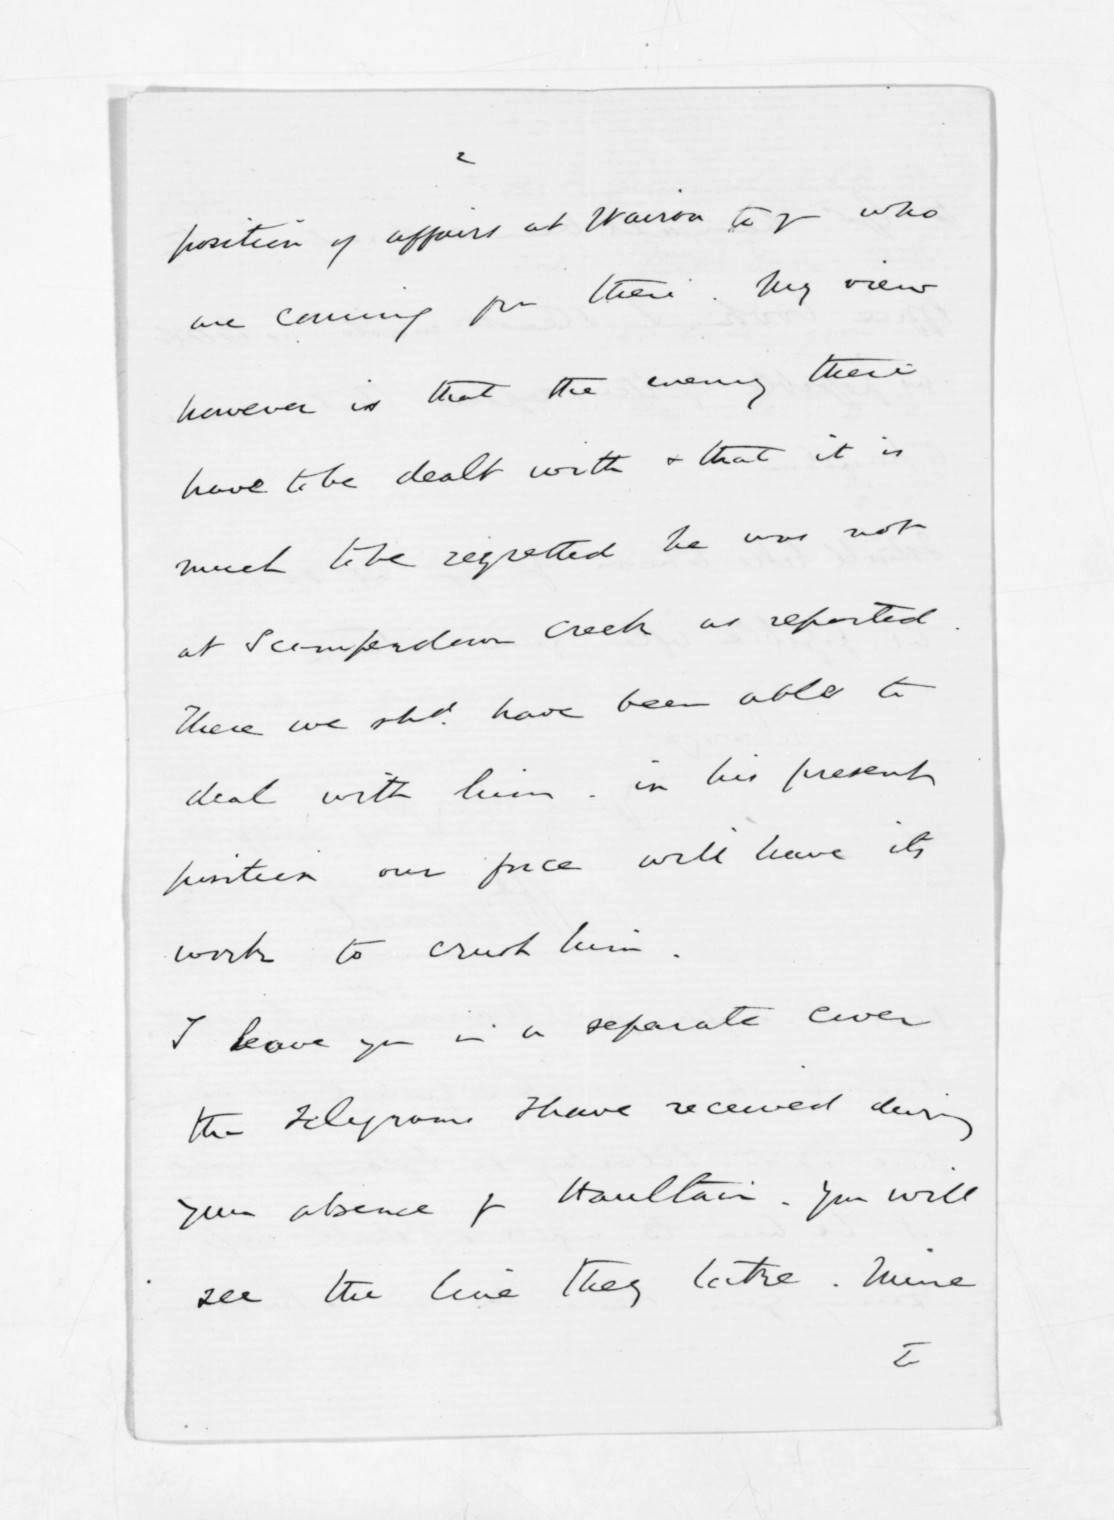 2
position of affairs at Wairoa to you who
are coming from there. My view
however is that the enemy there
have to be dealt with & that it is
much to be regretted he was not
at Scamperdown Creek as reported.
There we shd. have been able to
deal with him. in his present
position our force will have its
work to crush him.
I leave you in a separate cover
the telegrams I have received during
your absence from Haultain. You will
see the line they take. Mine
to